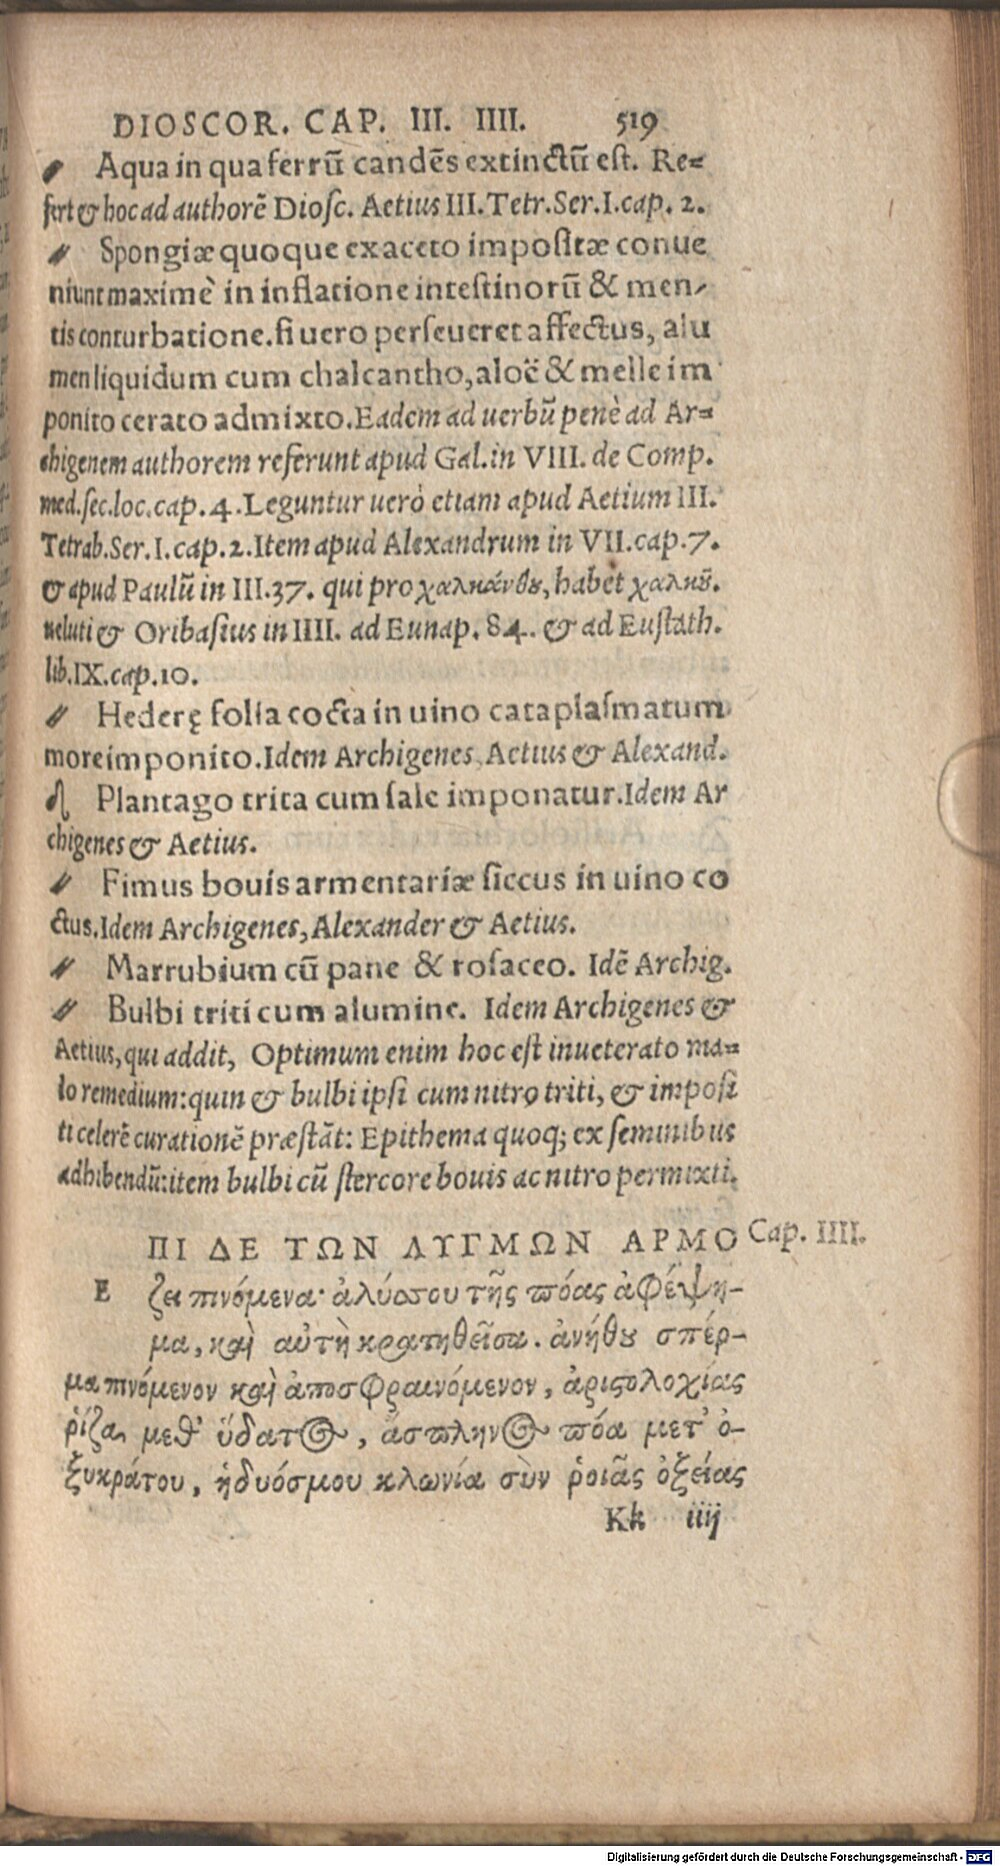 DIOSCOR. CAP. III. IIII. 519
Aqua in qua ferrū candēs extinctū est. Re=
fert & hoc ad authorē Diosc. Aetius III. Tetr. Ser. I. cap. 2.
Spongiæ quoque ex aceto impositæ conue
niunt maximè in inflatione intestinorū & men-
tis conturbatione. si uero perseueret affectus, alu
men liquidum cum chalcantho, aloë & melle im
ponito cerato admixto. Eadem ad uerbū penè ad Ar=
chigenem authorem referunt apud Gal. in VIII. de Comp.
med. sec. loc. cap. 4. Leguntur uerò etiam apud Aetium III.
Tetrab. Ser. I. cap. 2. Item apud Alexandrum in VII. cap. 7.
& apud Paulū in III. 37. qui pro χαλκάνθȣ, habet χαλκȣ͂.
ueluti & Oribasius in IIII. ad Eunap. 84. & ad Eustath.
lib. IX. cap. 10.
Hederę folia cocta in uino cataplasmatum
more imponito. Idem Archigenes, Aetius & Alexand.
Plantago trita cum sale imponatur. Idem Ar
chigenes & Aetius.
Fimus bouis armentariæ siccus in uino co
ctus. Idem Archigenes, Alexander & Aetius.
Marrubium cū pane & rosaceo. Idē Archig.
Bulbi triti cum alumine. Idem Archigenes &
Aetius, qui addit, Optimum enim hoc est inueterato ma=
lo remedium: quin & bulbi ipsi cum nitro triti, & imposi
ti celerē curationē præstāt: Epithema quoq; ex seminibus
adhibendū: item bulbi cū stercore bouis ac nitro permixti.
ΠΙ ΔΕ ΤΩΝ ΛΥΓΜΩΝ ΑΡΜΟ Cap. IIII.
Ε ζει πινόμενα· ἀλύσσου τῆς πόας ἀφέψη-
μα, καὶ αὐτὴ κρατηθεῖσα. ἀνήθȣ σπέρ-
μα πινόμενον καὶ ἀποσφραινόμενον, ἀριστολοχίας
ῥίζα μεθ' ὕδατος, ἄσπληνος πόα μετ' ὀ-
ξυκράτου, ἡδυόσμου κλωνία σὺν ῥοιᾶς ὀξείας
Kk iiij
Digitalisierung gefördert durch die Deutsche Forschungsgemeinschaft - DFG